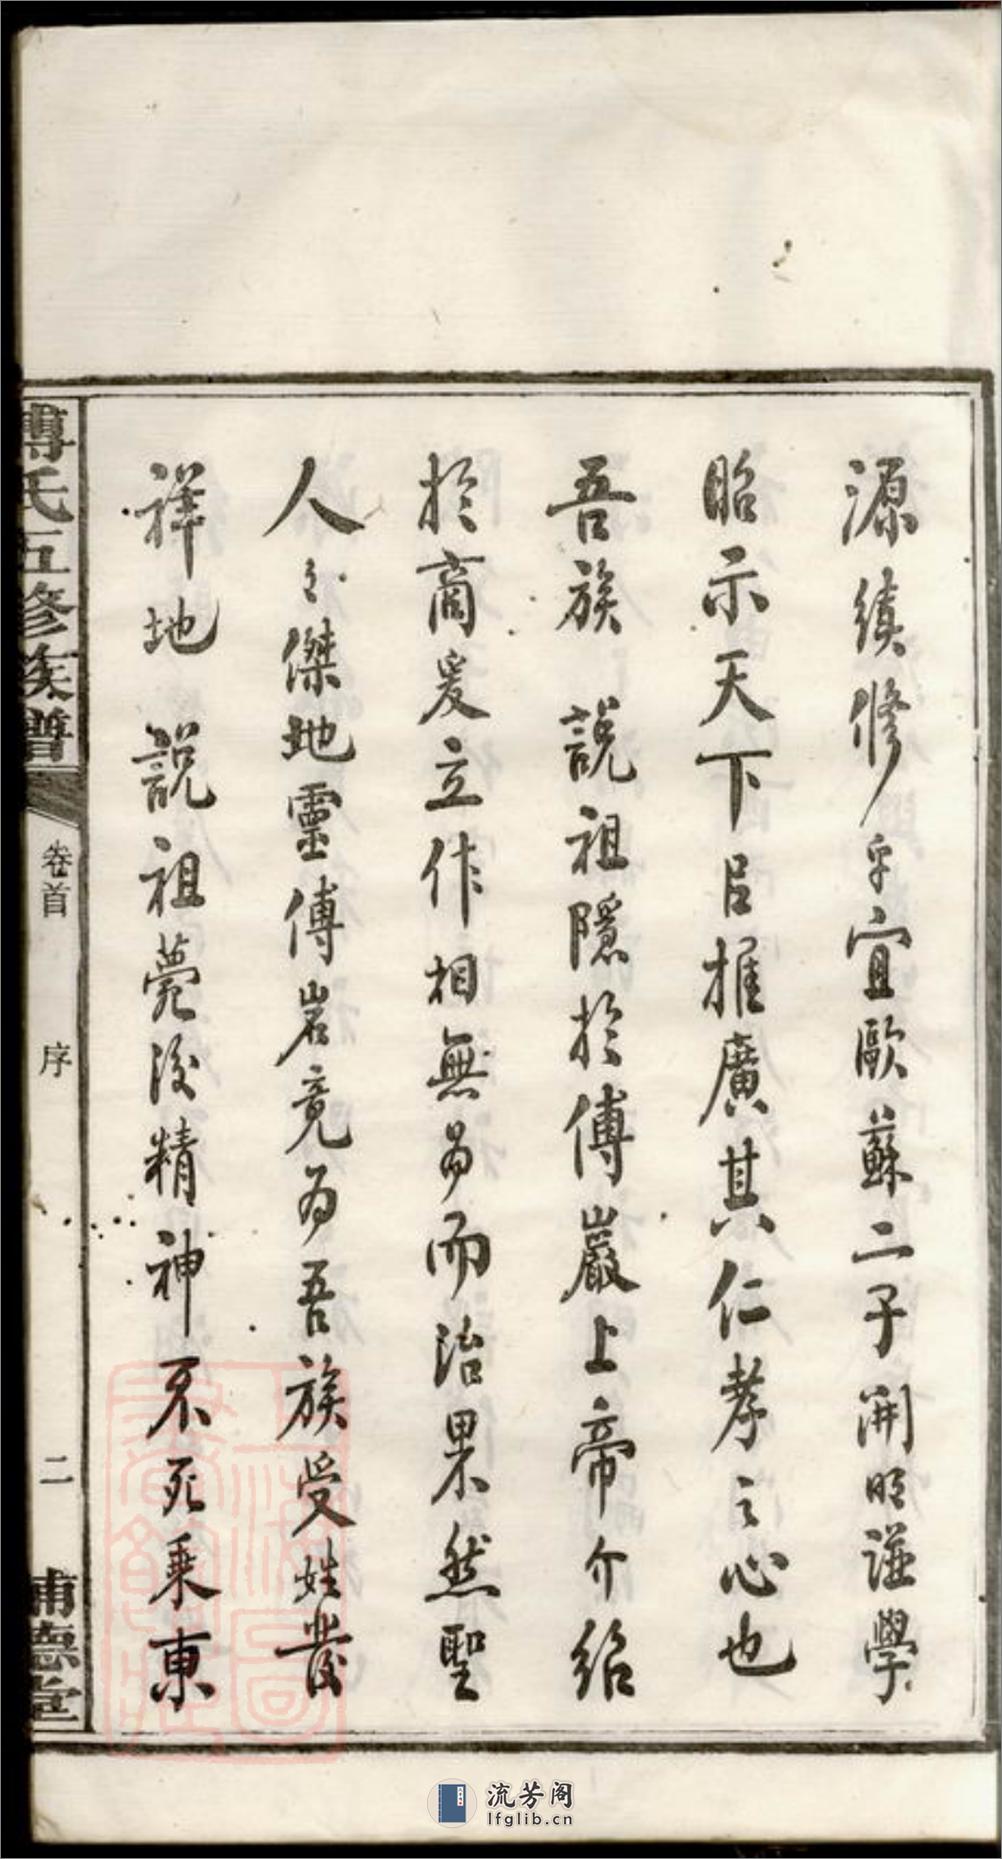 源續修乎宜歐蘇二子開明譜學
昭示天下旨推廣其仁孝之心也
吾族 說祖隱於傅巖上帝介紹
於商爰立作相無為而治果然聖
人之傑地靈傅岩竟為吾族受姓發
祥地 說祖薨後精神不死乘東
傅氏五修族譜
卷首
序
二
輔德堂
流芳阁
lfglib.cn